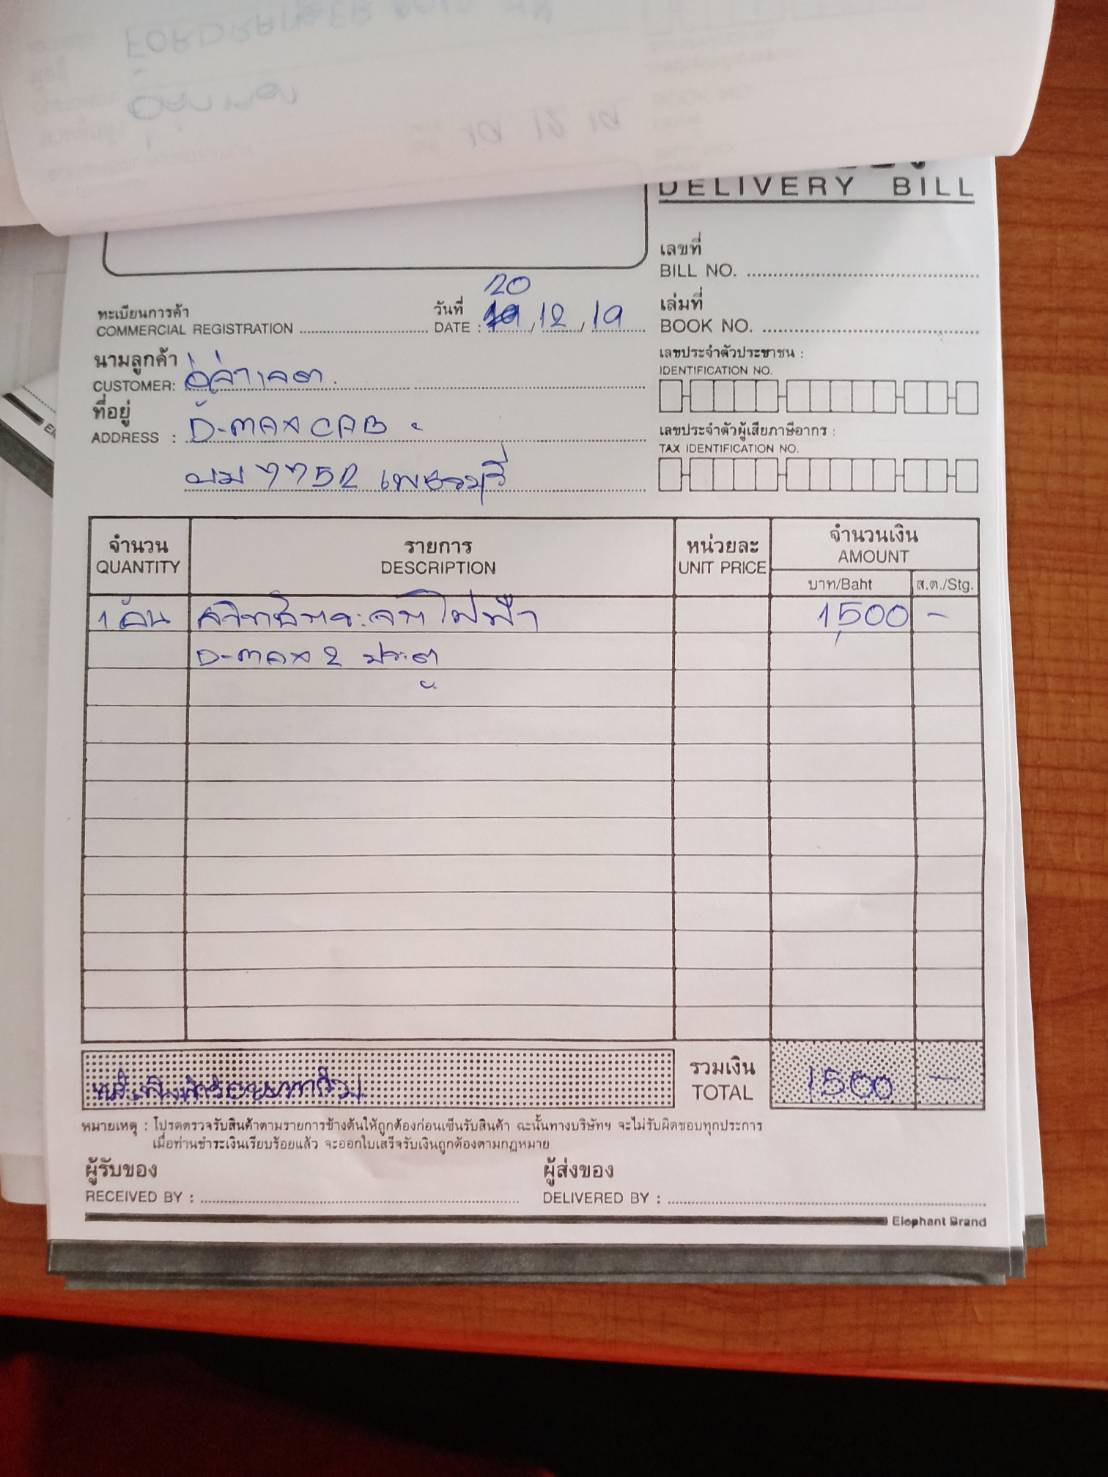 DELIVERY BILL
เลขที่
BILL NO.
20
ทะเบียนการค้า
COMMERCIAL REGISTRATION
วันที่
DATE : 19, 12, 19
เล่มที่
BOOK NO.
นามลูกค้า
CUSTOMER: อู่ช่างเจต
เลขประจำตัวประชาชน :
IDENTIFICATION NO.
ที่อยู่
ADDRESS : D-MAX CAB
บม 7752 เพชรบุรี
เลขประจำตัวผู้เสียภาษีอากร :
TAX IDENTIFICATION NO.
จำนวน
QUANTITY
รายการ
DESCRIPTION
หน่วยละ
UNIT PRICE
จำนวนเงิน
AMOUNT
บาท/Baht
ส.ต./Stg.
1 อัน สวิทช์กระจกไฟฟ้า 1,500 -
D-MAX 2 ประตู
หนึ่งพันห้าร้อยบาทถ้วน
รวมเงิน
TOTAL
1500 -
หมายเหตุ : โปรดตรวจรับสินค้าตามรายการข้างต้นให้ถูกต้องก่อนเซ็นรับสินค้า ฉะนั้นทางบริษัทฯ จะไม่รับผิดชอบทุกประการ
เมื่อท่านชำระเงินเรียบร้อยแล้ว จะออกใบเสร็จรับเงินถูกต้องตามกฎหมาย
ผู้รับของ
RECEIVED BY :
ผู้ส่งของ
DELIVERED BY :
Elephant Brand